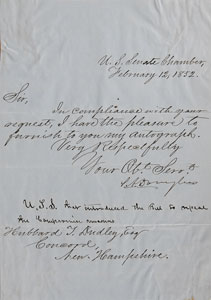 U. S. Senate Chamber,
February 12, 1852.
Sir,
In compliance with your
request, I have the pleasure to
furnish to you my autograph.
Very Respectfully
Your Obt. Servt.
S. A. Douglas
U. S. S. introduced the Bill to repeal
the Compromise
Hubbard T. Dudley, Esq
Concord,
New. Hampshire.